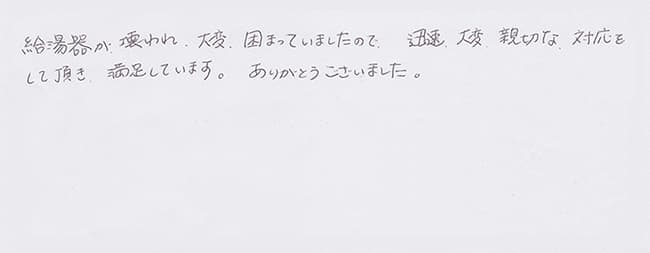 給湯器が壊われ、大変、困まっていましたので 迅速、大変、親切な、対応を
して頂き、満足しています。 ありがとうございました。